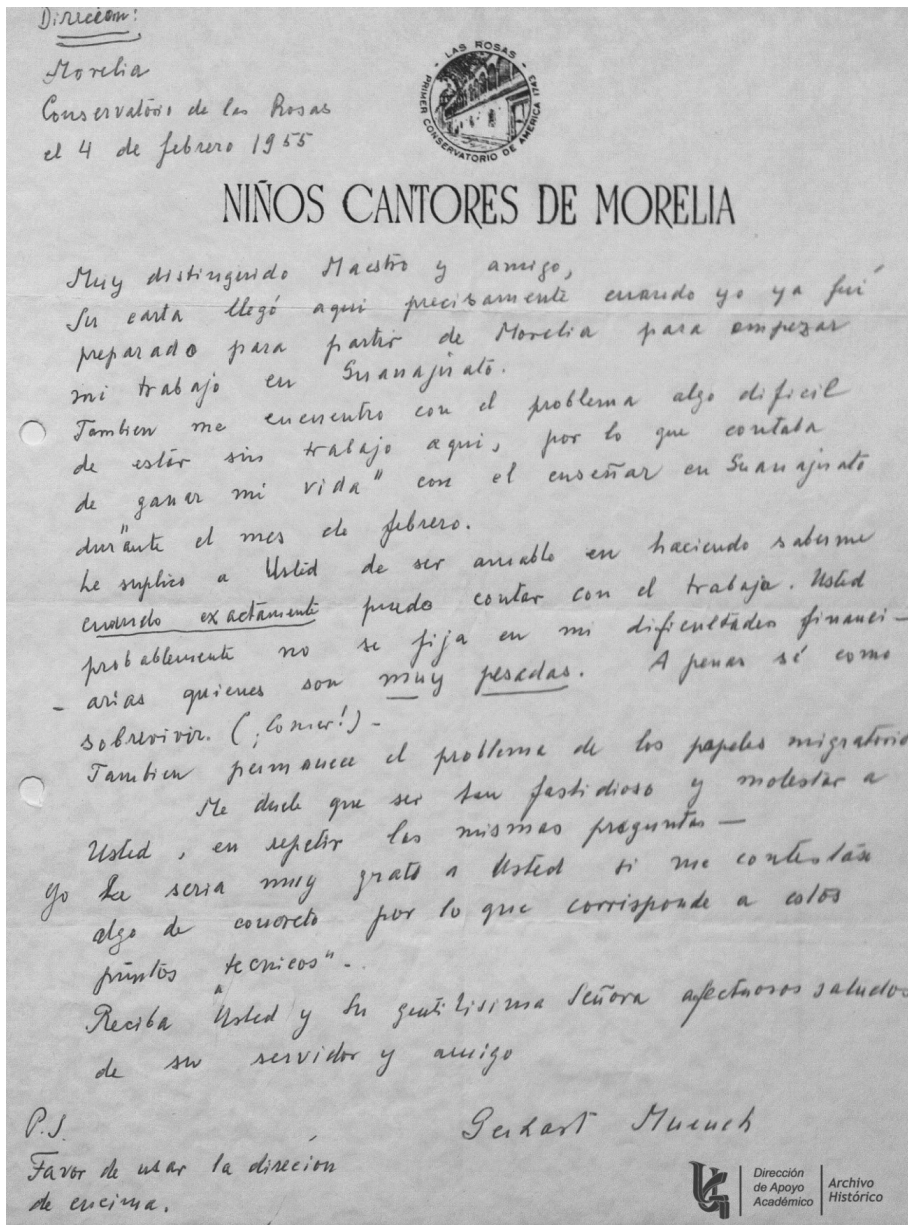 Direccion:
Morelia
Conservatorio de las Rosas
el 4 de febrero 1955
LAS ROSAS
PRIMER CONSERVATORIO DE AMERICA 1743
NIÑOS CANTORES DE MORELIA
Muy distinguido Maestro y amigo,
Su carta llegó aqui precisamente cuando yo ya fuí
preparado para partir de Morelia para empezar
mi trabajo en Guanajuato.
Tambien me encuentro con el problema algo dificil
de estár sin trabajo aqui, por lo que contaba
de „ganar mi vida" con el enseñar en Guanajuato
durante el mes de febrero.
Le suplico a Usted de ser amable en haciendo saberme
cuando exactamente puedo contar con el trabajo. Usted
probablemente no se fija en mi dificultades financi-
- arias quienes son muy pesadas. A penas sé como
sobrevivir. (¡Comer!) -
Tambien permanece el problema de los papeles migratorio
Me duele que ser tan fastidioso y molestar a
Usted, en repetir las mismas preguntas —
Yo Le seria muy grato a Usted si me contestáse
algo de concreto por lo que corrisponde a estos
puntos „tecnicos" -.
Reciba Usted y Su gentilisima Señora afectuosos saludos
de su servidor y amigo
Gerhart Muench
P.S.
Favor de usar la direcion
de encima.
UG
Dirección
de Apoyo
Académico
Archivo
Histórico